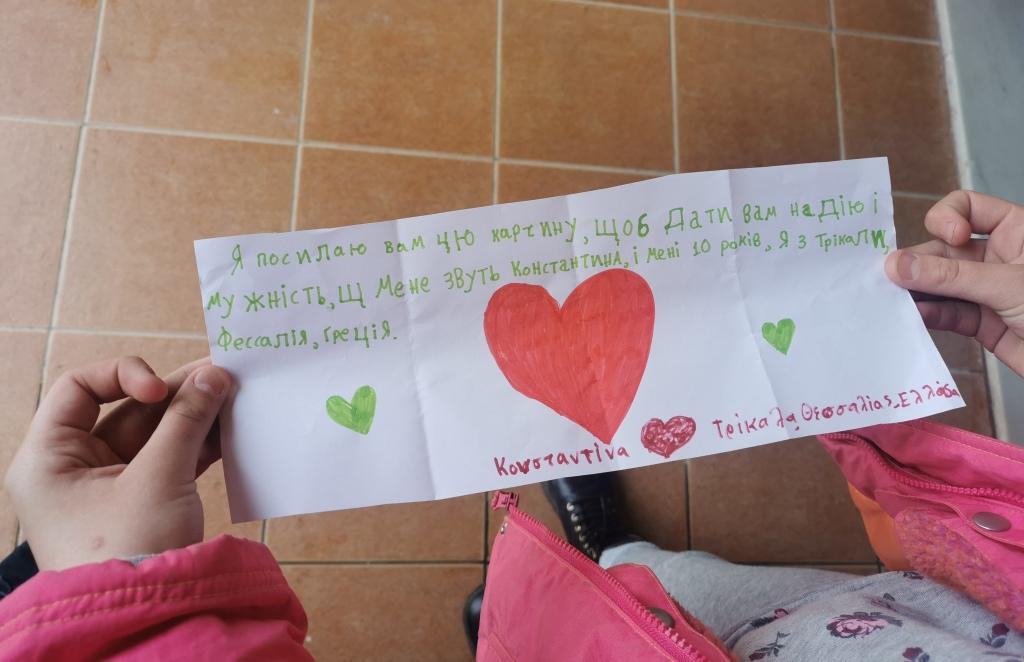 Я посилаю вам цю картину, щоб Дати вам наДіЮ і
му жність, Щ Мене ЗВУТЬ Константина, і мені 10 років, Я з Трікали,
Фессалія, Греція.
Κωνσταντίνα Τρίκαλα, Θεσσαλίας, Ελλάδα